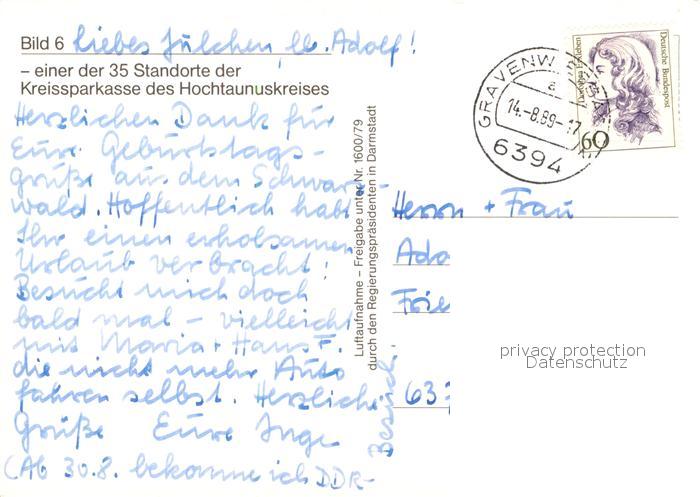 Bild 6 Liebes Julchen, lb. Adolf!
– einer der 35 Standorte der
Kreissparkasse des Hochtaunuskreises
Herzlichen Dank für
Eure Geburtstags
grüße aus dem Schwarz
wald. Hoffentlich habt
Ihr einen erholsamen
Urlaub verbracht!
Besucht mich doch
bald mal – vielleicht
mit Maria + Hans F.
die nicht mehr Auto
fahren selbst. Herzliche
Grüße Eure Inge
(Ab 30.8. bekomme ich DDR-
Besuch.
Luftaufnahme – Freigabe unter Nr. 1600/79
durch den Regierungspräsidenten in Darmstadt
GRAVENW
a
14.-8.89-17
6394
Deutsche Bundespost
60
Herrn + Frau
Ado
Frie
63
privacy protection
Datenschutz